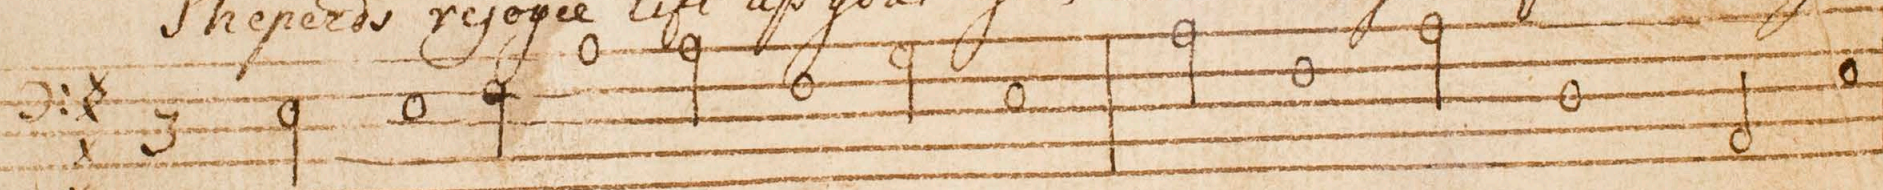 Sheperds rejoyce lift up your
3